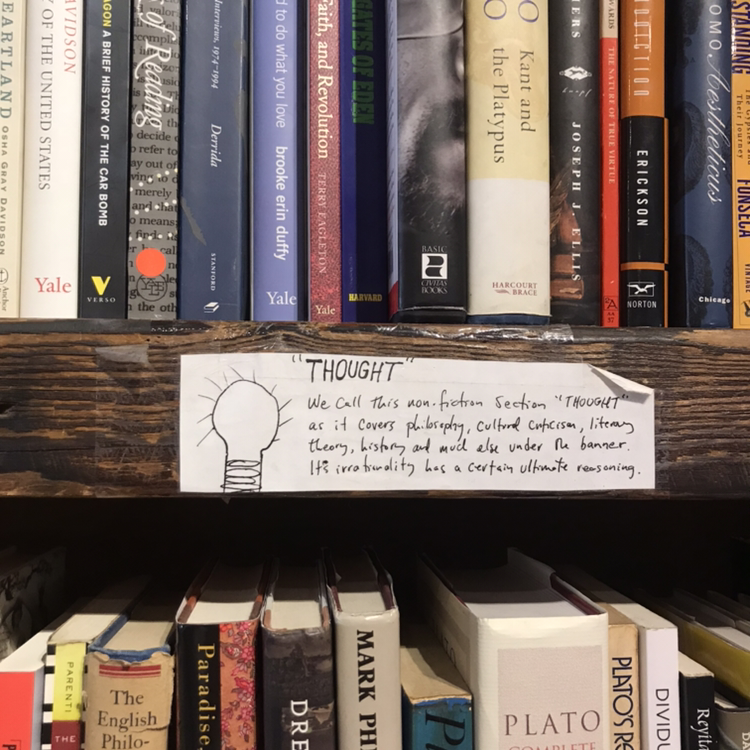 EARTLAND OSHA GRAY DAVIDSON
Anchor
DAVIDSON
Y OF THE UNITED STATES
Yale
AGON A BRIEF HISTORY OF THE CAR BOMB
V
VERSO
of Reading
decide
refer to
way out of
merely
and the
means
find
the oth
Interviews, 1974-1994
Derrida
STANFORD
d to do what you love brooke erin duffy
Yale
Faith, and Revolution TERRY EAGLETON
Yale
GATES OF EDEN
HARVARD
BASIC
B
CIVITAS
BOOKS
Kant and
the Platypus
HARCOURT
BRACE
JOSEPH J ELLIS
WARDS THE NATURE OF TRUE VIRTUE
ERICKSON
NORTON
OMO Aestheticus
Chicago
STANDING
Their Journey
FONSECA
"THOUGHT"
We call this non-fiction section "THOUGHT"
as it covers philosophy, cultural criticism, literary
theory, history and much else under the banner.
It's irrationality has a certain ultimate reasoning.
PARENTI
THE
The
English
Philo-
Paradise
DRE
MARK PH
P
PLATO
COMPLETE
PLATO'S R
DIVID
Reyit